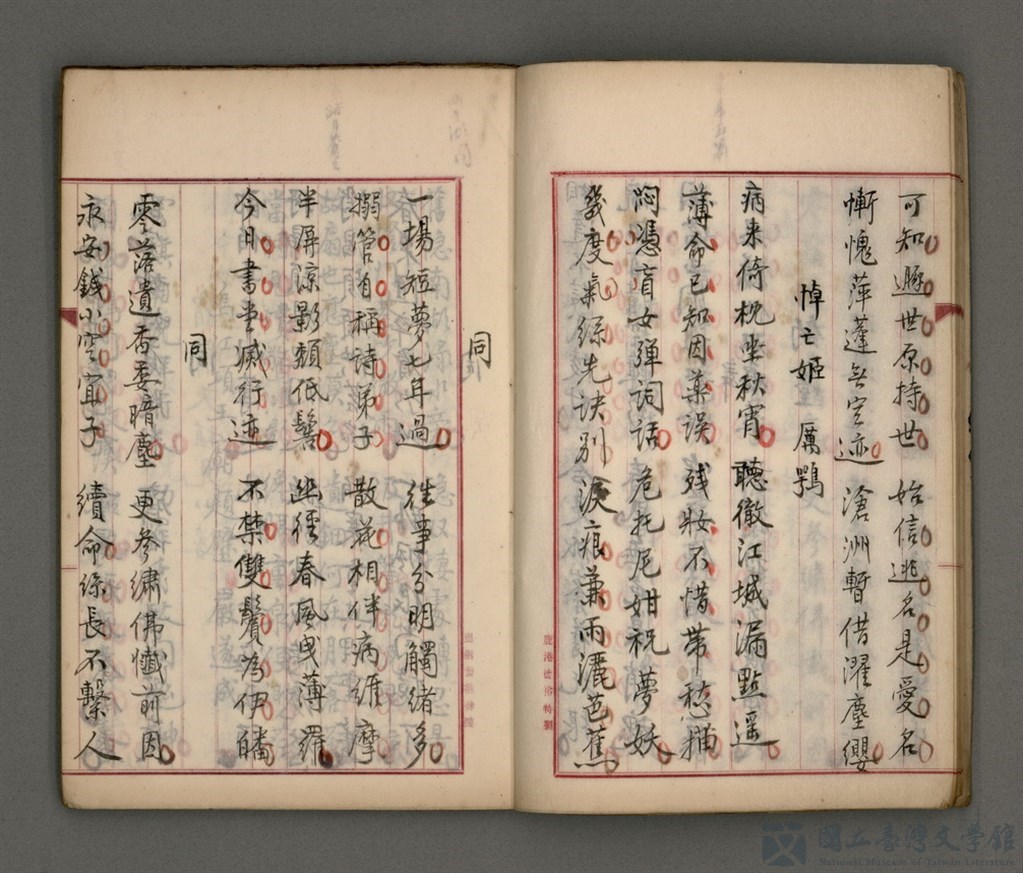 可知遯世原持世 始信逃名是愛名
慚愧萍蓬無定迹 滄洲暫借濯塵纓
悼亡姬 厲鶚
病来倚枕坐秋宵 聽徹江城漏點遥
薄命已知因藥误 残妝不惜带愁描
闷憑盲女弹詞話 危托尼姑祝夢妖
幾度氣絲先诀别 淚痕兼雨灑芭蕉
同
一場短夢七年過 往事分明觸緒多
搦管自稱詩弟子 散花相伴病維摩
半屏涼影頹低髻 幽徑春風曳薄羅
今日書堂滅行迹 不禁雙鬢為伊皤
同
零落遺香委暗塵 更參繡佛懺前因
永安錢小空宜子 續命絲長不繫人
國立臺灣文學館
National Museum of Taiwan Literature